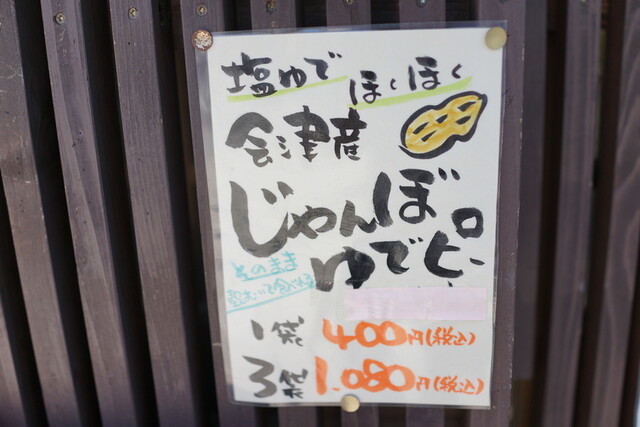 塩ゆで ほくほく
会津産
じゃんぼ
ゆでピー
そのまま
殻をむいて食べれる
1袋 400円(税込)
3袋 1,080円(税込)